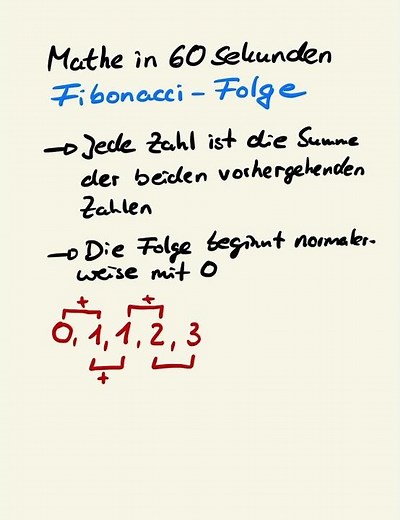 Mathe in 60 Sekunden
Fibonacci - Folge
→ Jede Zahl ist die Summe
der beiden vorhergehenden
Zahlen
→ Die Folge beginnt normaler-
weise mit 0
+ +
0, 1, 1, 2, 3
+